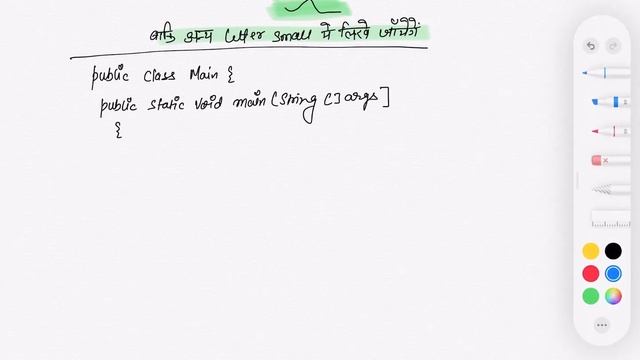 बाकि अन्य Letter small में लिखे जाएँगे
public class Main {
public static void main [String [] args]
{